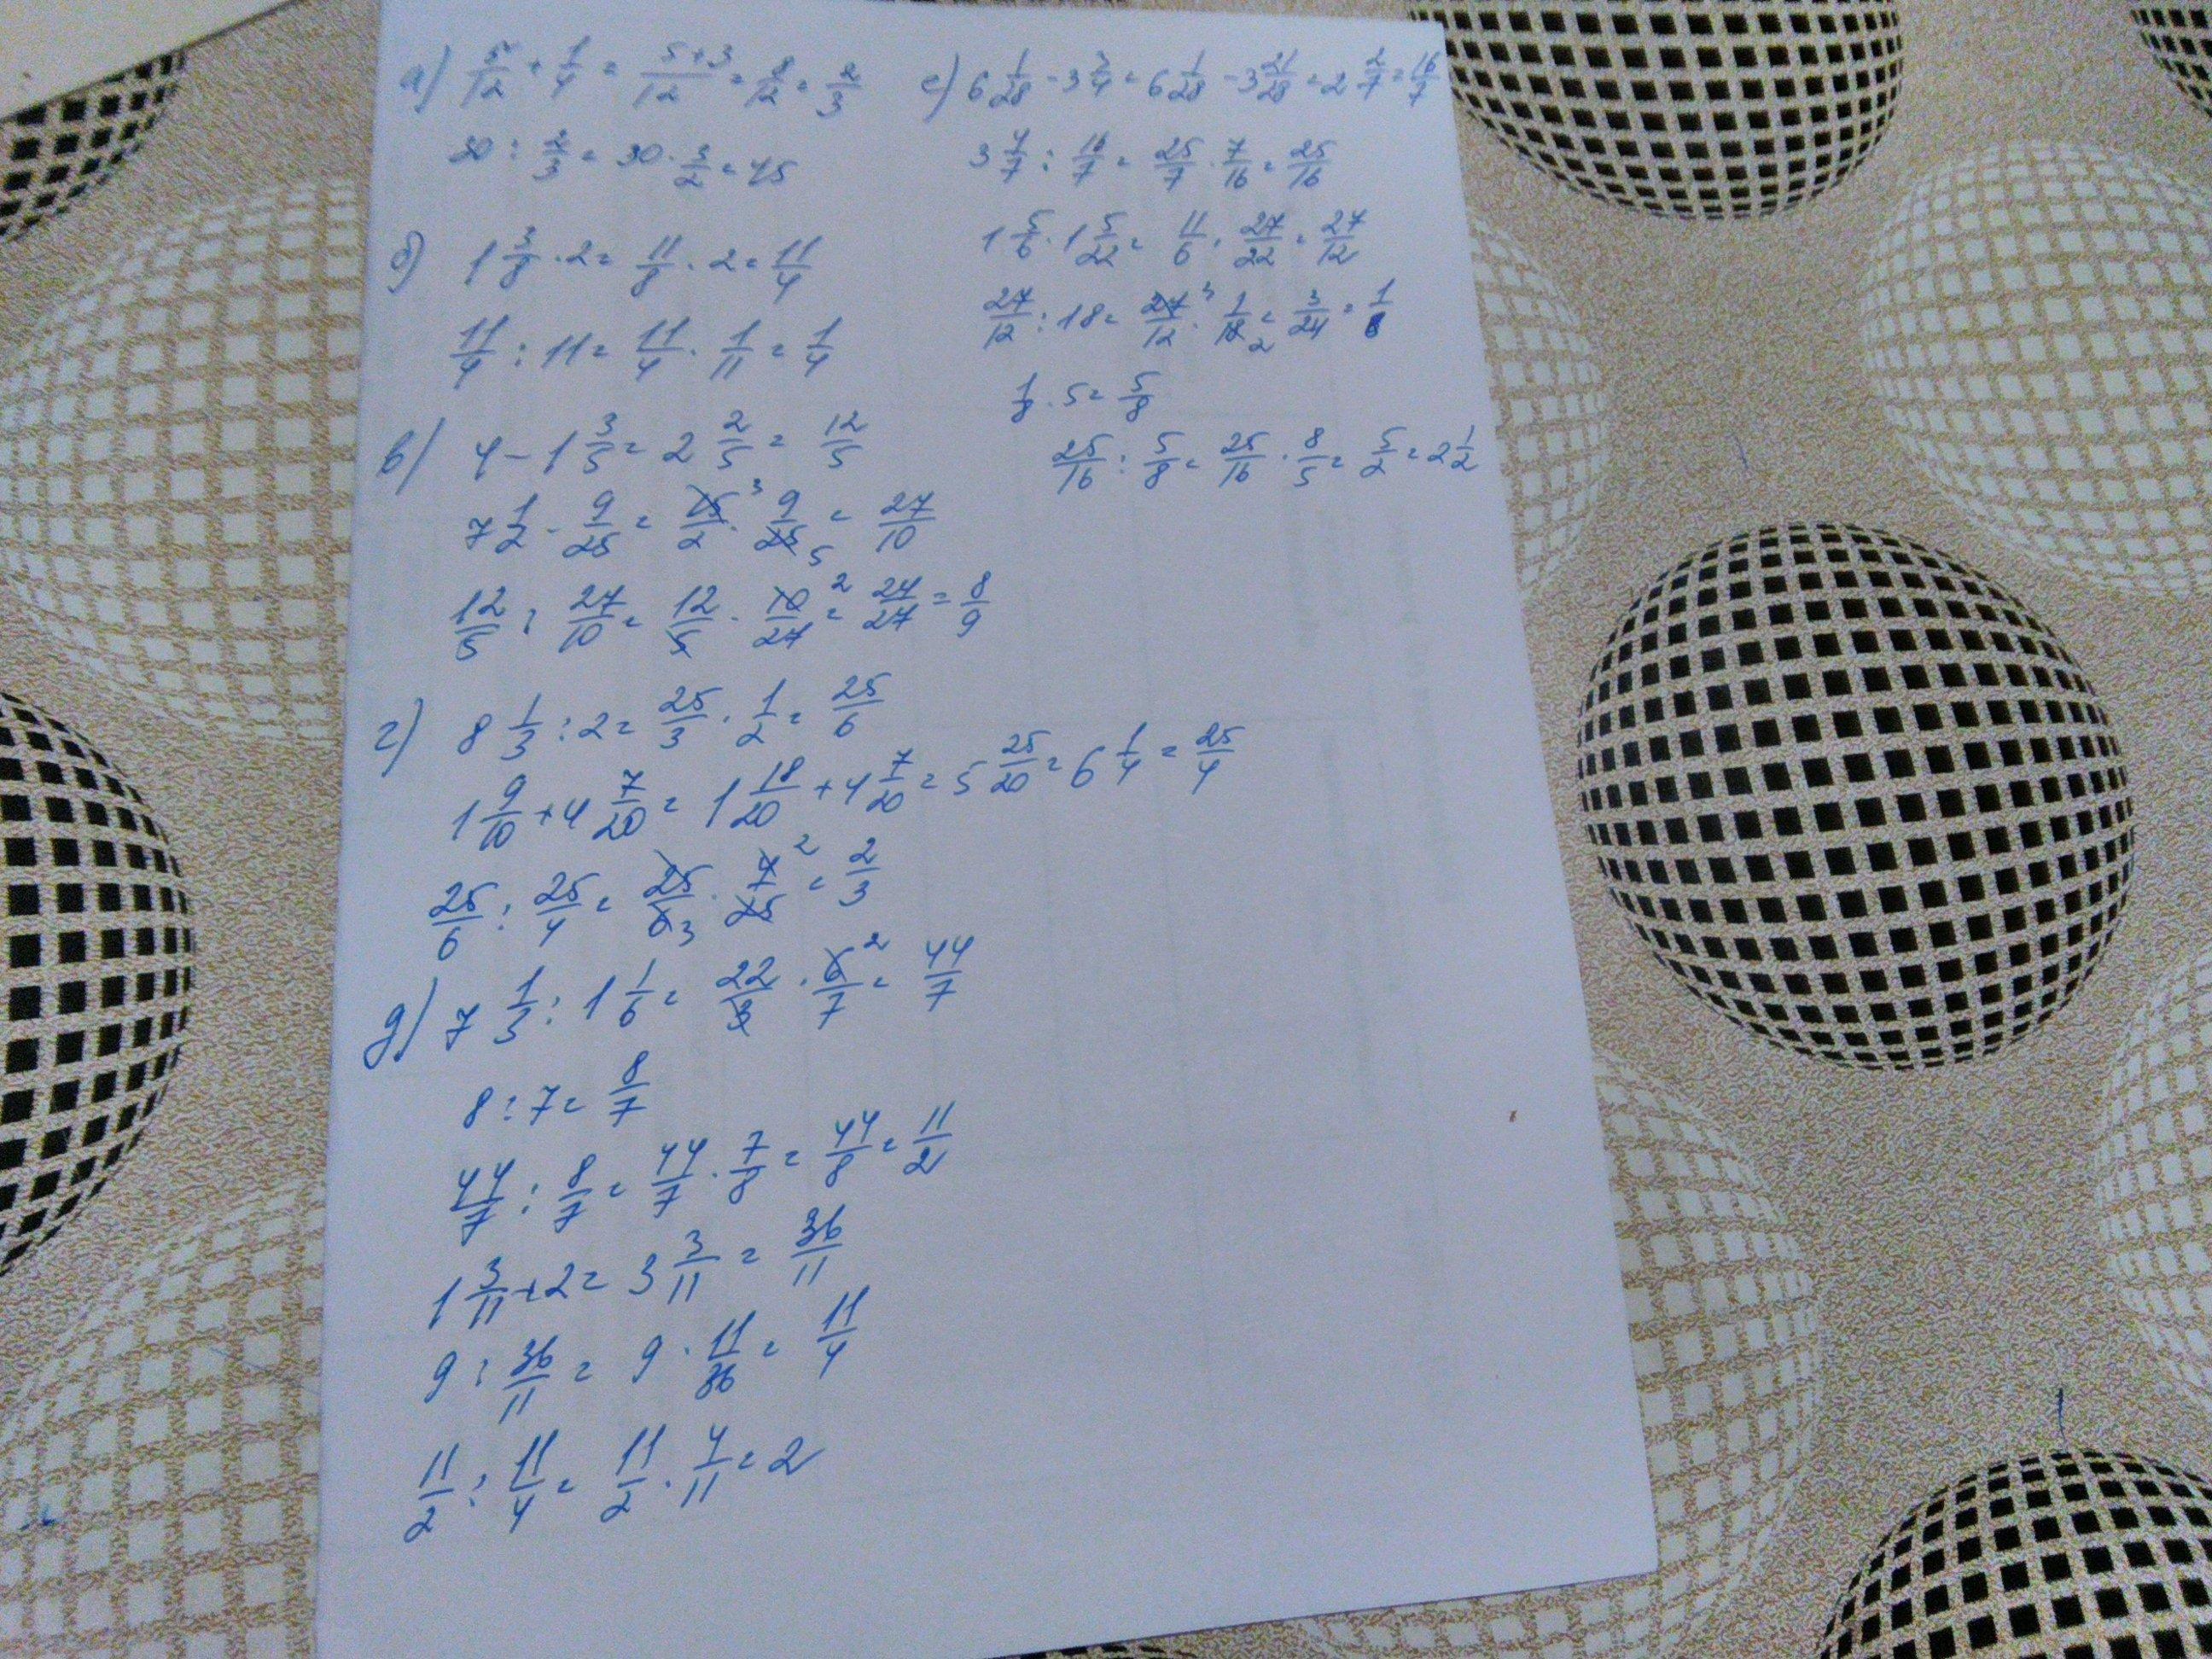 а) 5/12 + 1/4 = 5+3/12 = 8/12 = 2/3
30 : 2/3 = 30 · 3/2 = 45
б) 1 3/8 · 2 = 11/8 · 2 = 11/4
11/4 : 11 = 11/4 · 1/11 = 1/4
в) 4 - 1 3/5 = 2 2/5 = 12/5
7 1/2 · 9/25 = 15/2 · 9/25 = 27/10
12/5 : 27/10 = 12/5 · 10/27 = 24/27 = 8/9
г) 8 1/3 : 2 = 25/3 · 1/2 = 25/6
1 9/10 + 4 7/20 = 1 18/20 + 4 7/20 = 5 25/20 = 6 1/4 = 25/4
25/6 : 25/4 = 25/6 · 4/25 = 2/3
д) 7 1/3 : 1 1/6 = 22/3 · 6/7 = 44/7
8 : 7 = 8/7
44/7 : 8/7 = 44/7 · 7/8 = 44/8 = 11/2
1 3/11 + 2 = 3 3/11 = 36/11
9 : 36/11 = 9 · 11/36 = 11/4
11/2 : 11/4 = 11/2 · 4/11 = 2
е) 6 1/28 - 3 3/4 = 6 1/28 - 3 21/28 = 2 2/7 = 16/7
3 4/7 : 16/7 = 25/7 · 7/16 = 25/16
1 5/6 · 1 5/22 = 11/6 · 27/22 = 27/12
27/12 : 18 = 27/12 · 1/18 = 3/24 = 1/8
1/8 · 5 = 5/8
25/16 : 5/8 = 25/16 · 8/5 = 5/2 = 2 1/2